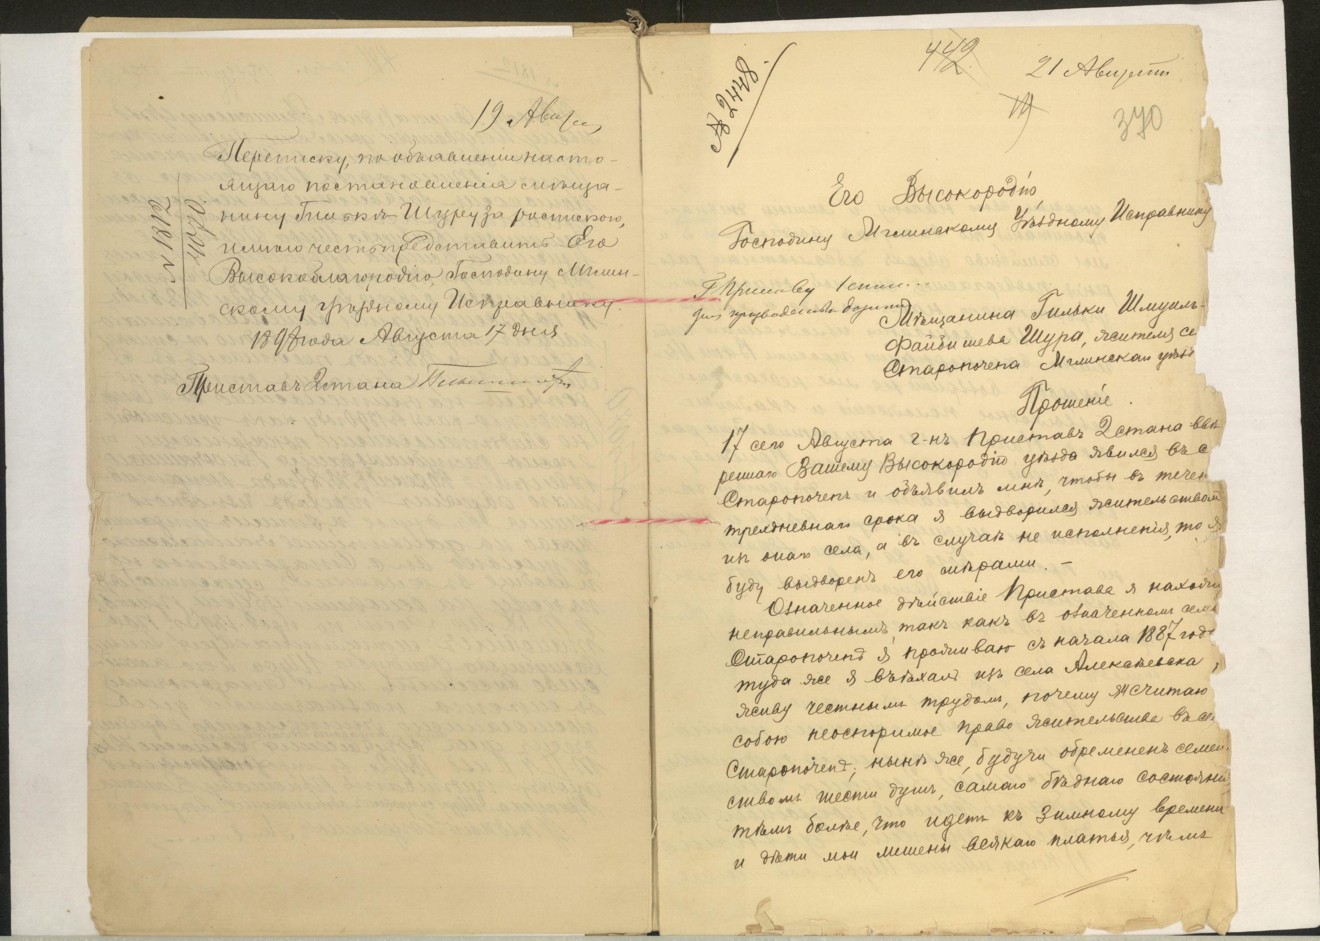 19 Авгус
№ 1812
Переписку, по объявленіи насто-
ящаго постановленія мѣща-
нину Гилькѣ Шуру за роспискою,
имѣю честь представить Его
Высокоблагородію, Господину Мглин-
скому уѣздному Исправнику.
189 года Августа 17 дня
Приставъ 2 стана
№ 2448.
442
21 Августа
370
Его Высокородію
Господину Мглинскому Уѣздному Исправнику
Г. Приставу 1 стан...
Мѣщанина Гильки Шмуиль-
Файбишева Шура, жителя се
Старопочепа Мглинскаго уѣзд
Прошеніе.
17 сего Августа г-нъ Приставъ 2 стана ввѣ
реннаго Вашему Высокородію уѣзда явился въ с
Старопочепъ и объявилъ мнѣ, чтобы въ течен
трехдневнаго срока я выдворился жительствомъ
изъ онаго села, а въ случаѣ не исполненія, то я
буду выдворенъ его мѣрами. –
Означенное дѣйствіе Пристава я нахожу
неправильнымъ, такъ какъ въ означенномъ селѣ
Старопочепѣ я проживаю съ начала 1887 год
туда же я въѣхалъ изъ села Алексѣевска,
живу честнымъ трудомъ, почему я считаю
собою неоспоримое право жительства въ с
Старопочепѣ; нынѣ же, будучи обремененъ семей
ствомъ шести душъ, самаго бѣднаго состоянія
тѣмъ болѣе, что идетъ къ зимному времени
и дѣти мои лишены всякаго платья, чѣмъ